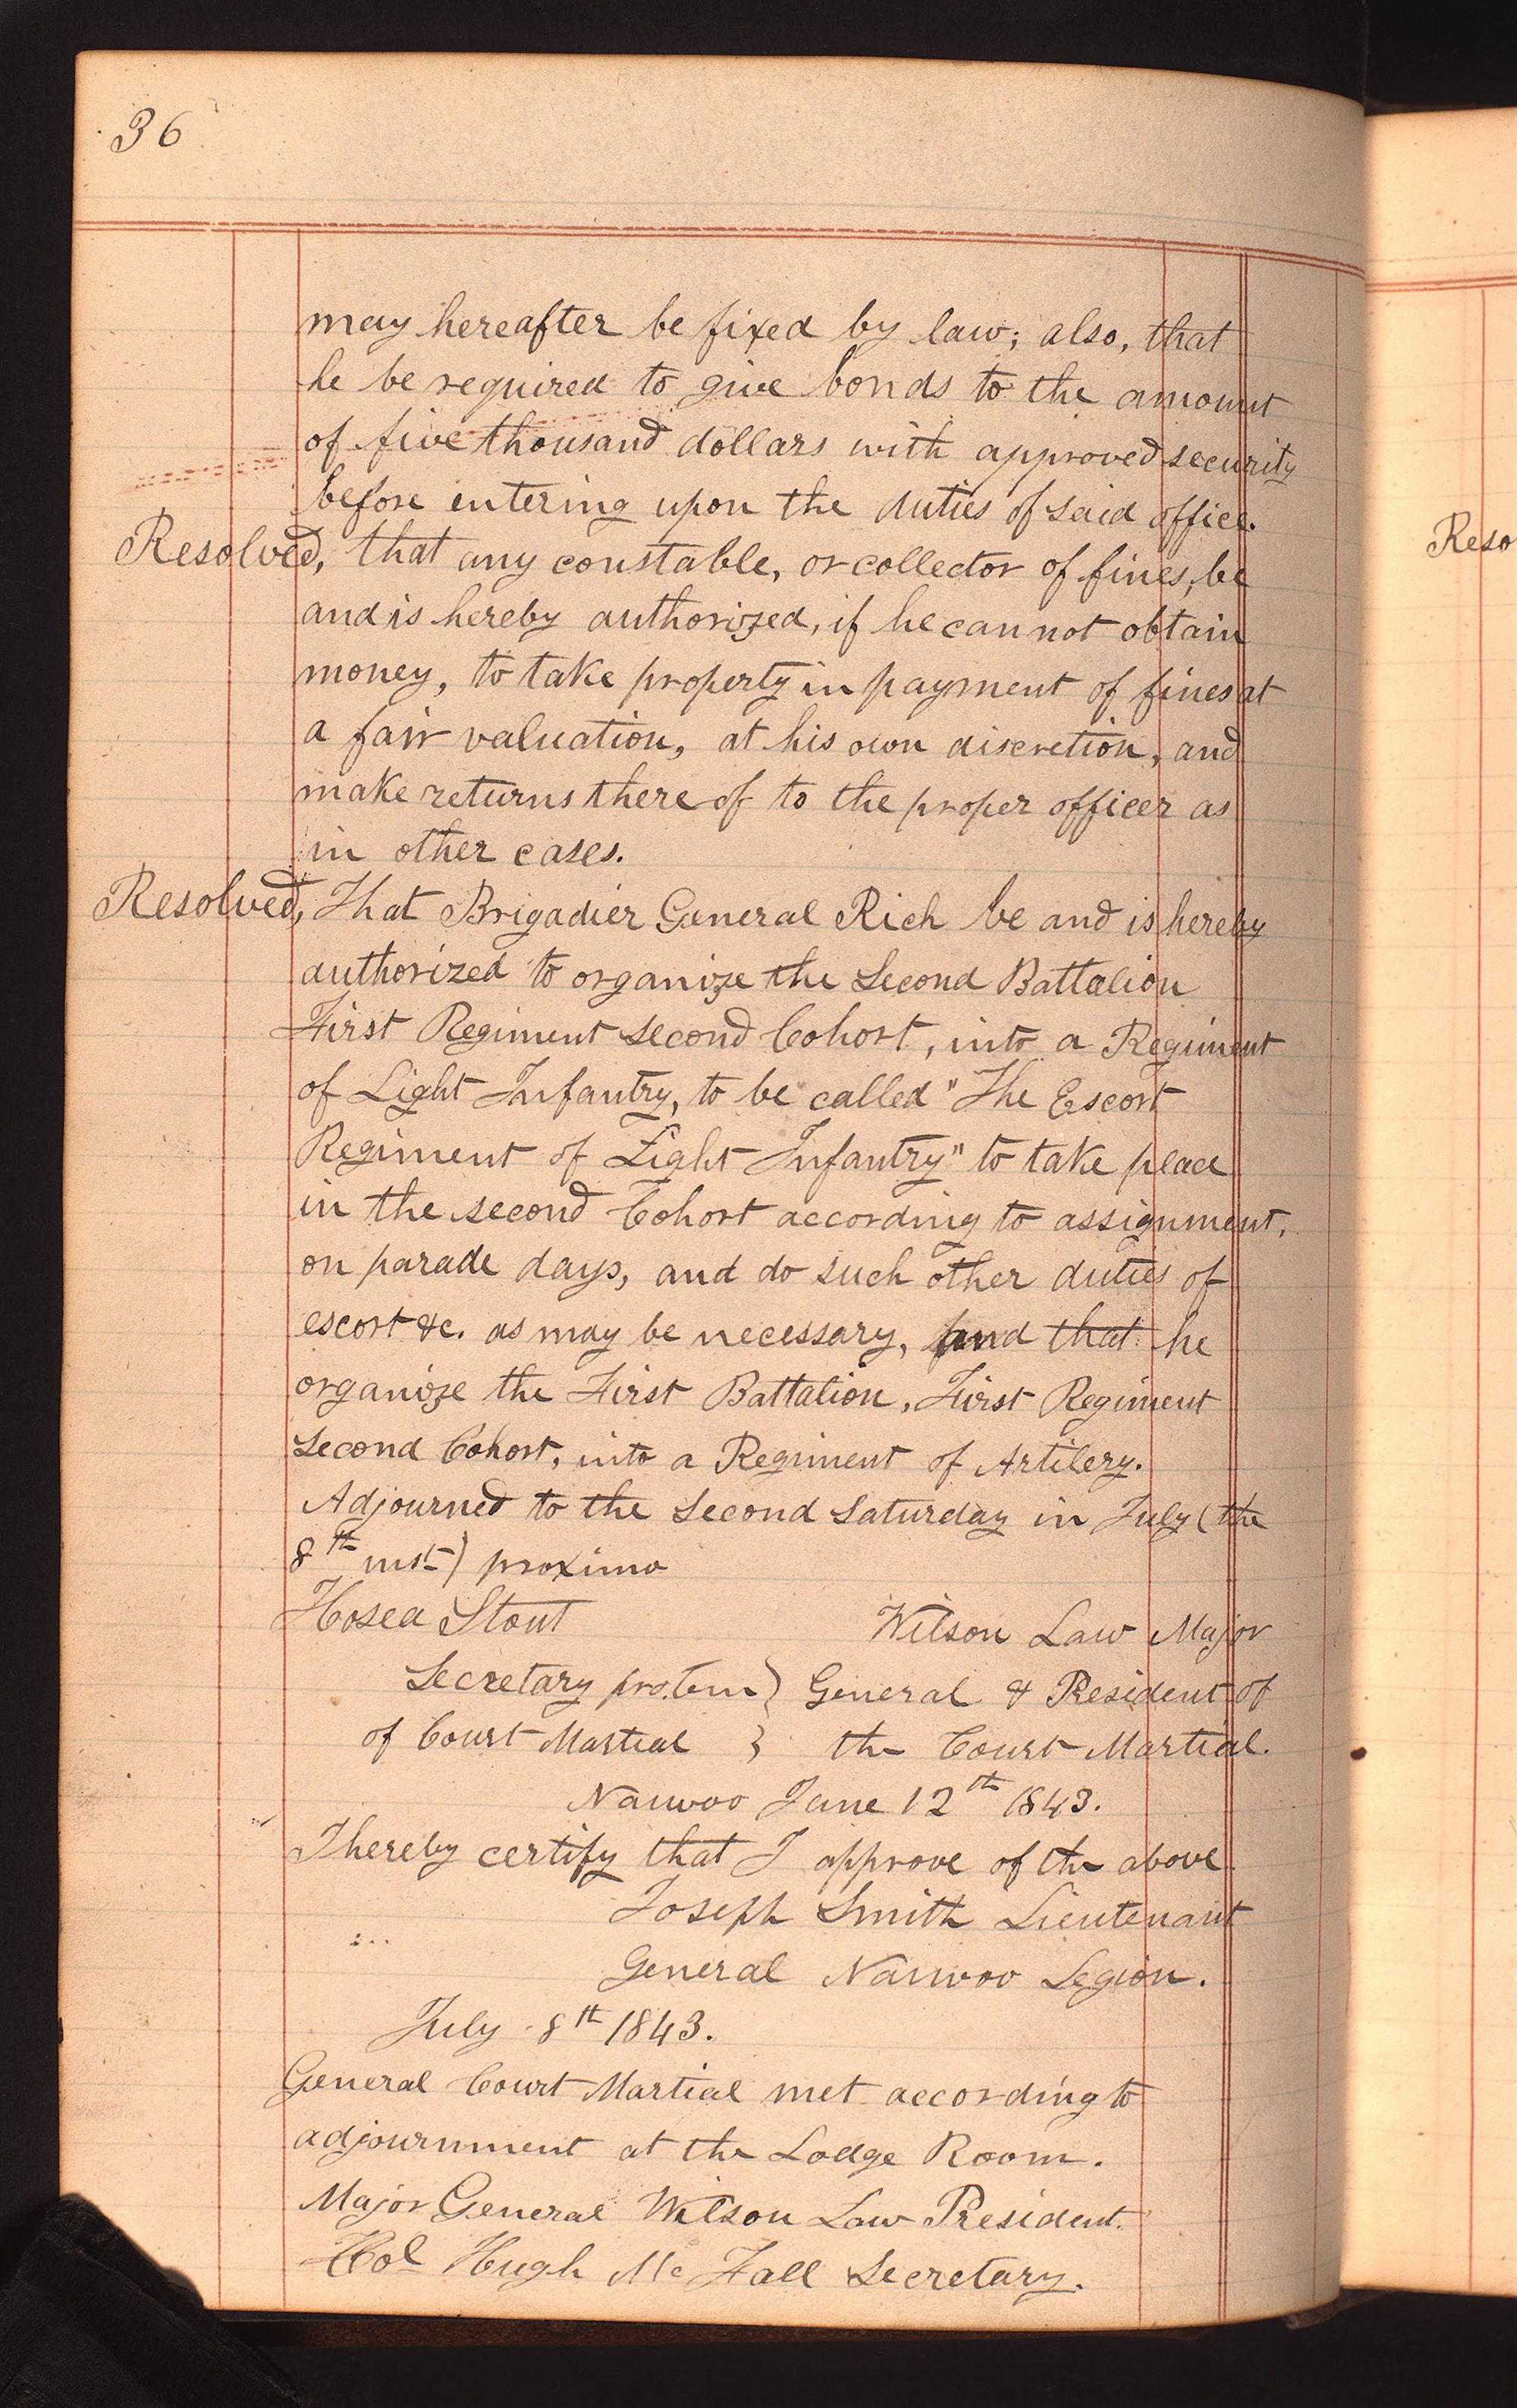 36
may hereafter be fixed by law; also, that
he be required to give bonds to the amount
of five thousand dollars with approved security
before entering upon the duties of said office.
Resolved, that any constable, or collector of fines, be
and is hereby authorized, if he can not obtain
money, to take property in payment of fines at
a fair valuation, at his own discretion, and
make returns there of to the proper officer as
in other cases.
Resolved, That Brigadier General Rich be and is hereby
authorized to organize the Second Battalion
First Regiment second Cohort, into a Regiment
of Light Infantry, to be called "The Escort
Regiment of Light Infantry" to take place
in the second Cohort according to assignment,
on parade days, and do such other duties of
escort &c. as may be necessary, and that he
organize the First Battalion, First Regiment
Second Cohort, into a Regiment of Artilery.
Adjourned to the Second Saturday in July (the
8th inst) proximo
Hosea Stout Wilson Law Major
Secretary protem } General & President of
of Court Martial } the Court Martial.
Nauvoo June 12th 1843.
I hereby certify that I approve of the above.
Joseph Smith Lieutenant
General Nauvoo Legion.
July 8th 1843.
General Court Martial met according to
adjournment at the Lodge Room.
Major General Wilson Law President.
Col Hugh Mc Fall Secretary.
Reso